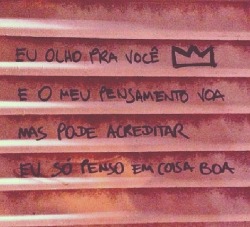 EU OLHO PRA VOCÊ
E O MEU PENSAMENTO VOA
MAS PODE ACREDITAR
EU SÓ PENSO EM COISA BOA